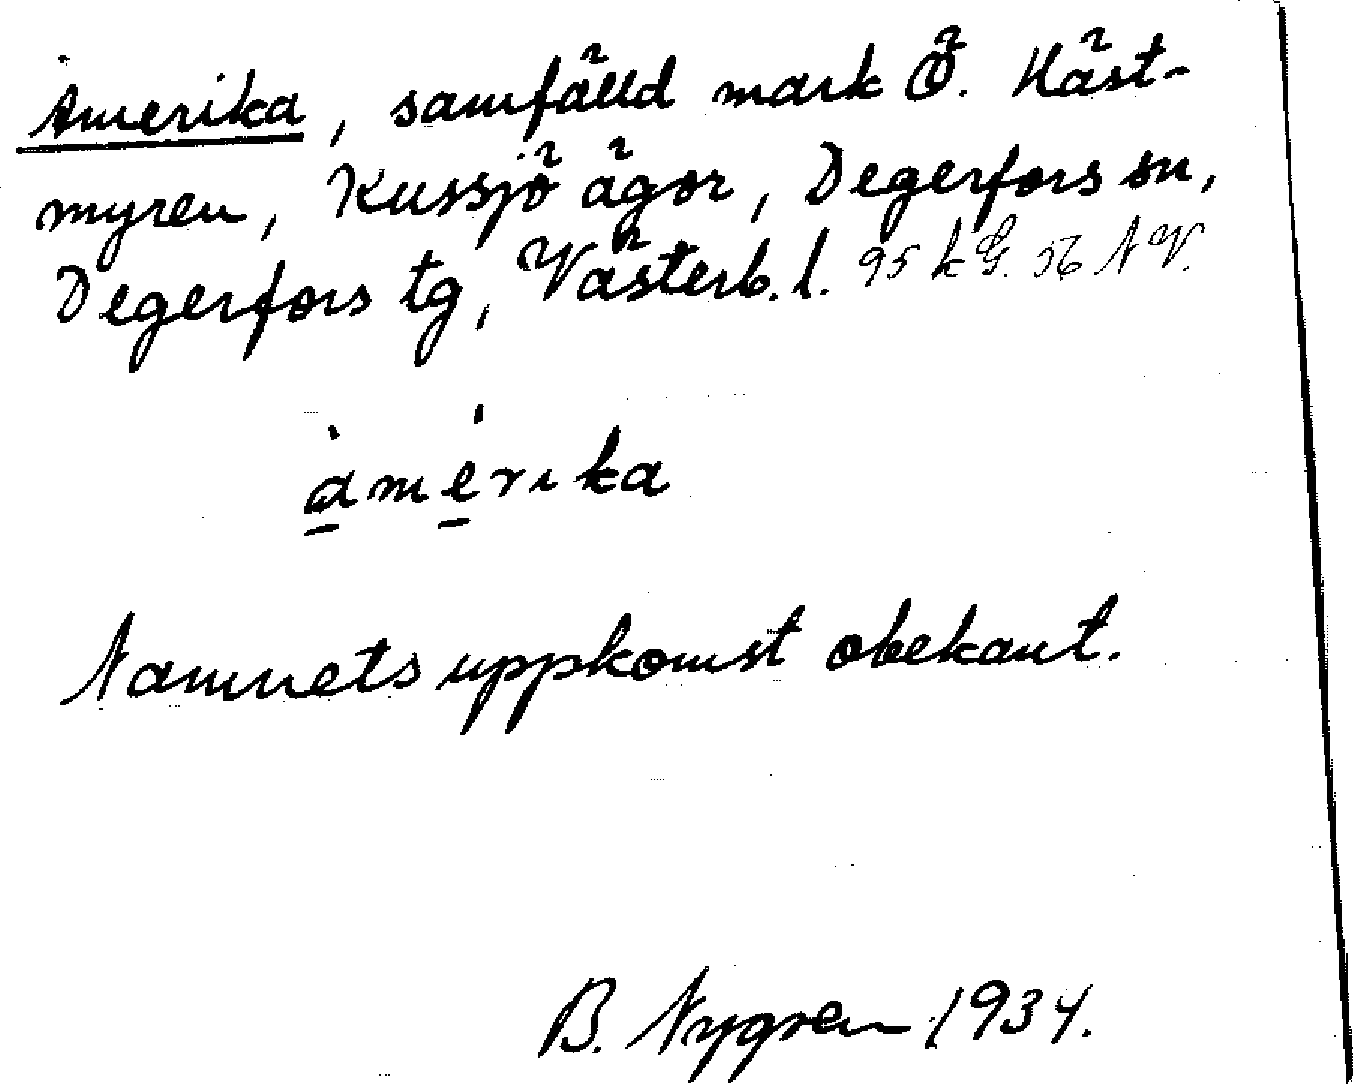 Amerika, samfälld mark Ö. Häst-
myren, Kussjö ägor, Degerfors sn,
Degerfors tg, Västerb. l. 95 k G. 56 N V.
àmérika
Namnets uppkomst obekant.
B. Nygren 1934.